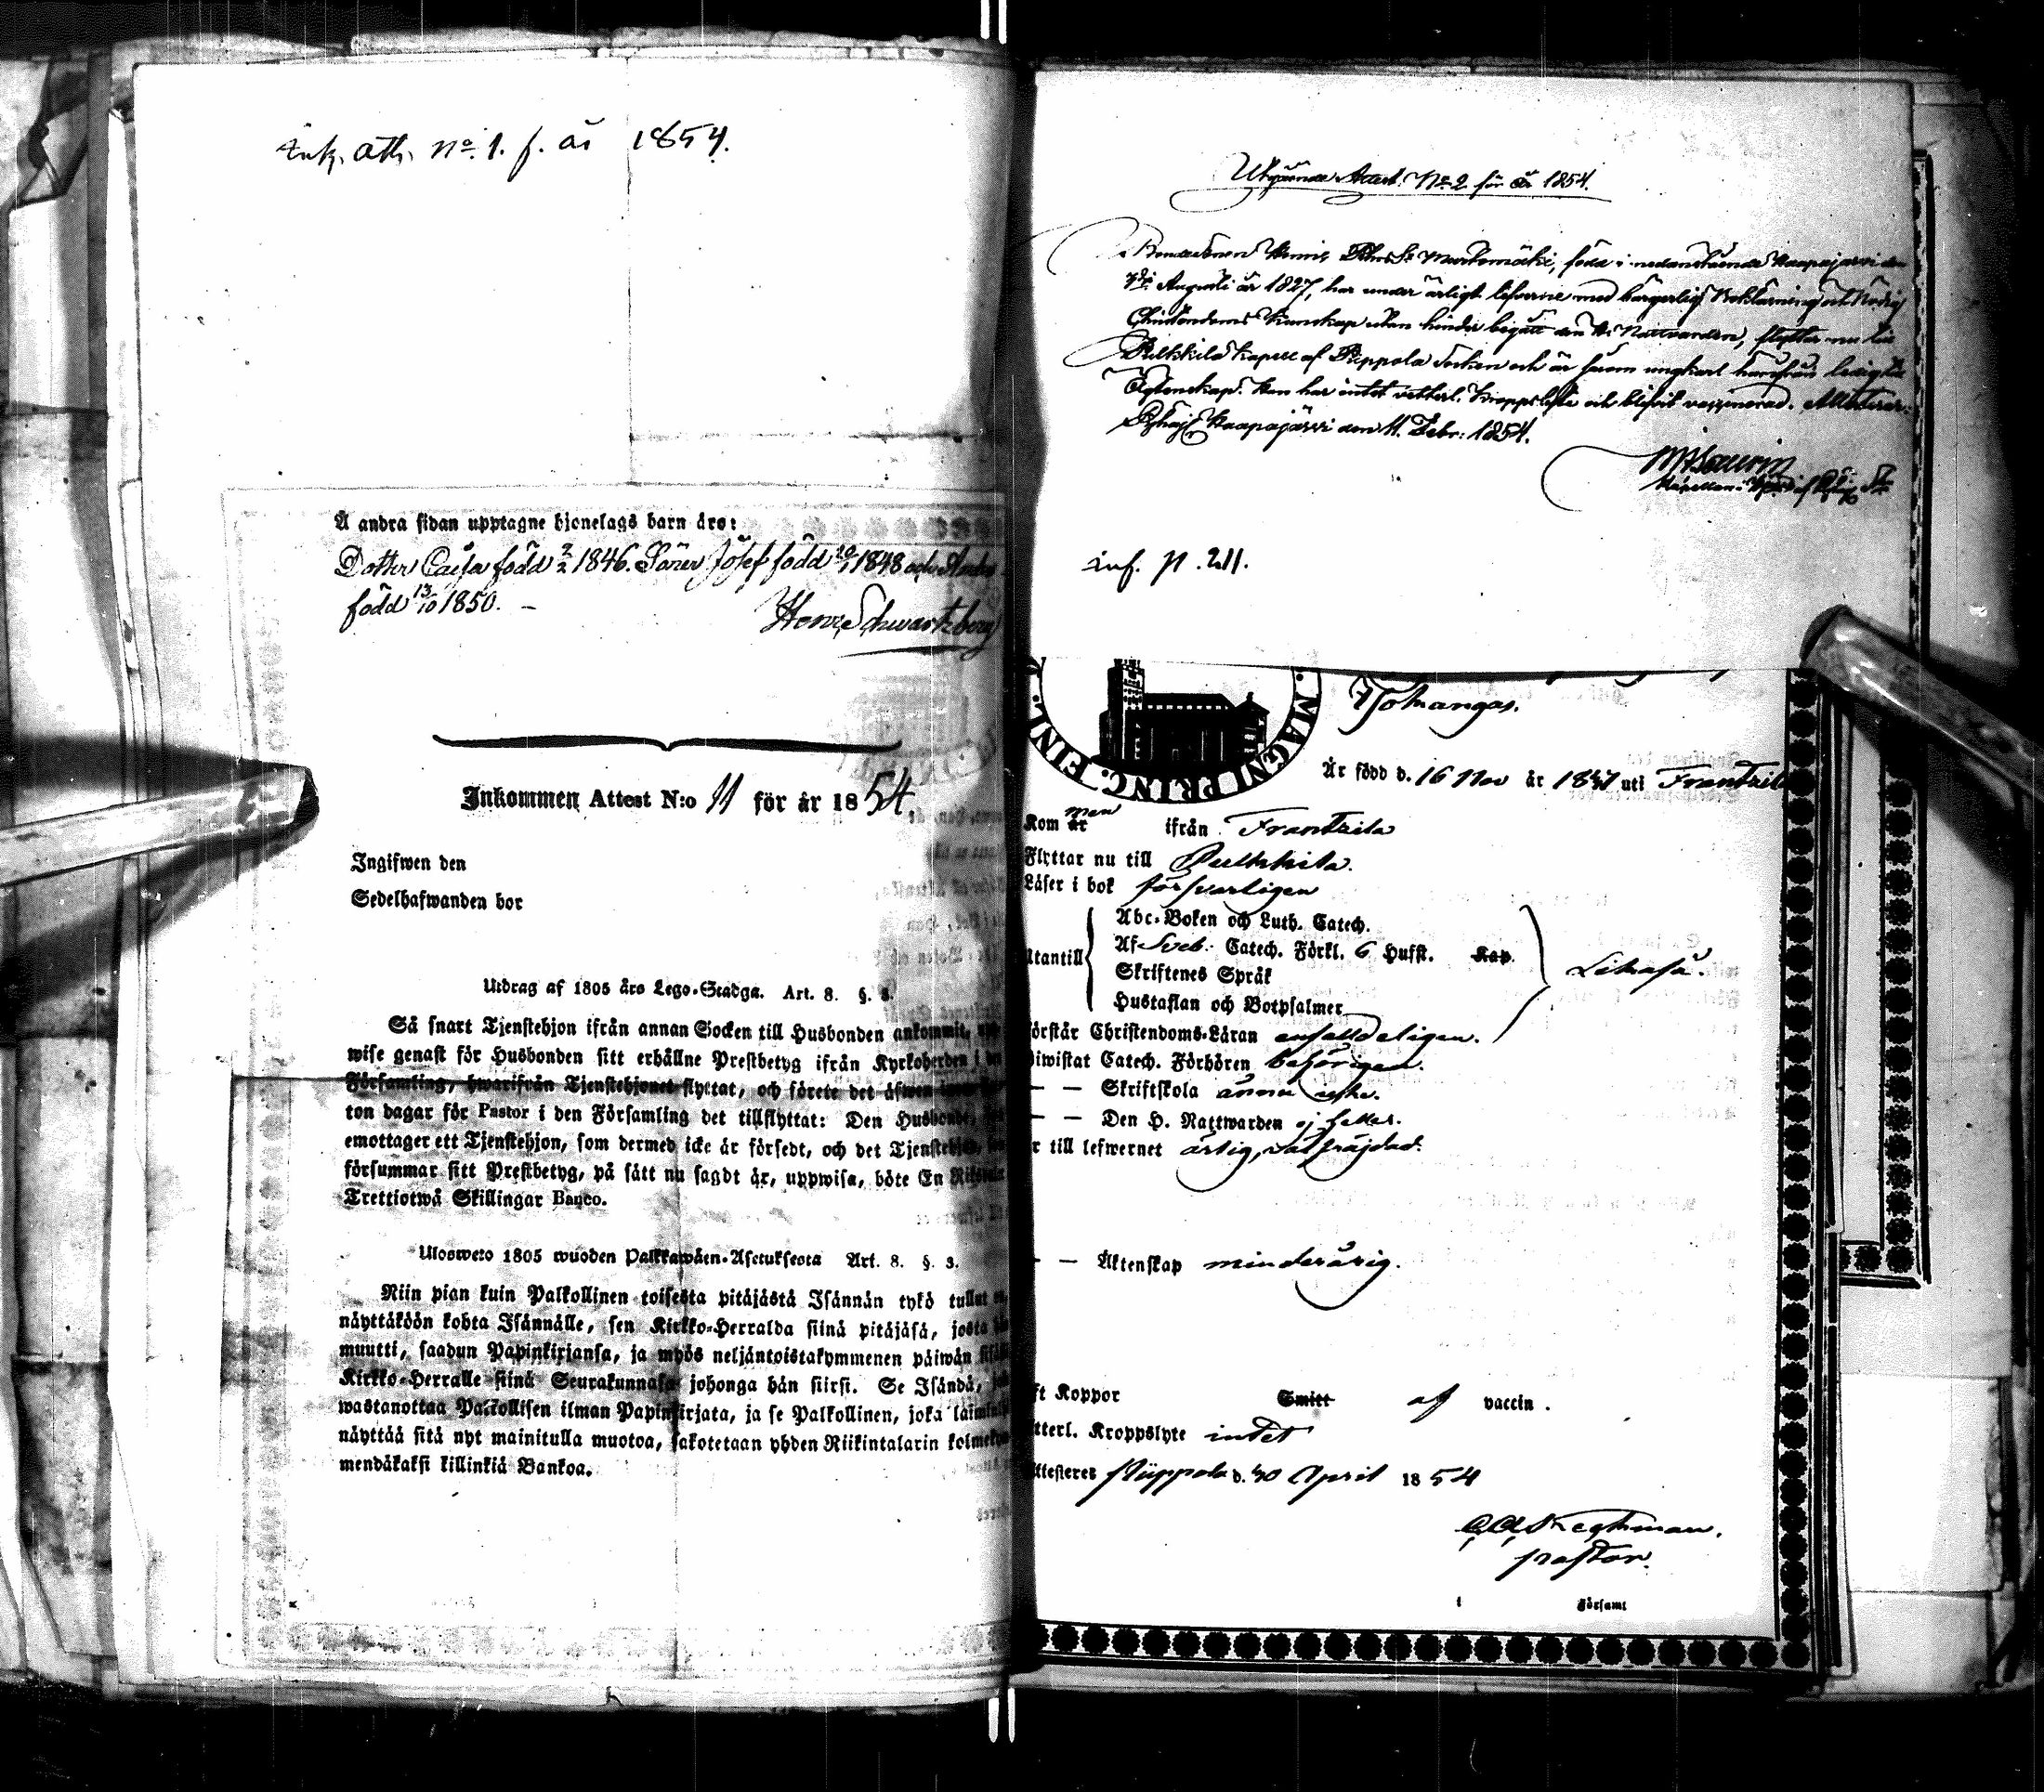 Ink. att. No. 1. f. år 1854.
Å andra sidan upptagne hjonelags barn äro:
Dotter Caisa född 2/2 1846. Söner Josef född 1848 och
född 13/10 1850. —
Henr. Schwartzberg
Inkommen Attest N:o 11 för år 1854
Ingifwen den
Sedelhafwanden bor
Utdrag af 1805 års Lego-Stadga. Art. 8. §. 3.
Så snart Tjenstehjon ifrån annan Socken till Husbonden ankommit,
wise genast för Husbonden sitt erhållne Prestbetyg ifrån Kyrkoherden i
Församling, hwarifrån Tjenstehjonet flyttat, och förete det äfwen
ton dagar för Pastor i den Församling det tillflyttat: Den Husbonde,
emottager ett Tjenstehjon, som dermed icke är försedt, och det Tjenstehjon,
försummar sitt Prestbetyg, på sätt nu sagdt är, uppwisa, böte En Riksdaler
Trettiotwå Skillingar Banco.
Uloswето 1805 wuoden Palkkawäen-Asetuksesta Art. 8. §. 3.
Niin pian kuin Palkollinen toisesta pitäjästä Isännän tykö tullut
näyttäköön kohta Isännälle, sen Kirkko-Herralda siinä pitäjäsä, josta
muutti, saadun Papinkirjansa, ja myös neljäntoistakymmenen päiwän
Kirkko-Herralle siinä Seurakunnasa johonga hän siirsi. Se Isändä,
wastanottaa Palkollisen ilman Papinkirjata, ja se Palkollinen, joka
näyttää sitä nyt mainitulla muotoa, sakotetaan yhden Riikintalarin
mendäkaksi killinkiä Bankoa.
Utgående Attest. No 2 för år 1854.
Bondesonen Hemis Martomäki, född i nedanstående Haapajärvi den
7de Augusti år 1827, har under ärligt lefverne med bärgerlig och nödig
Christendoms kunskap utan hinder begått den H. Nattvarden, flyttar nu till
Pulkkila Kapell af Piippola Socken och är såsom ungkarl härifrån ledig till
Ägtenskap. Han har intet vetterl. Kroppslyte och blifvit vaccinerad. Attesterar:
Pyhäj. Haapajärvi den 11. Febr: 1854.
inf. p. 211.
MAGNI PRINC. FINL.
Är född d. 16 Nov år 1841 uti Frantzila
Kom är men ifrån Frantzila
Flyttar nu till Pulkkila.
Läser i bok försvarligen
Utantill
Abc-Boken och Luth. Catech.
Af Sveb. Catech. Förkl. 6 Hufst. Kap.
Skriftenes Språk
Hustaflan och Botpsalmer
Likaså.
örstår Christendoms-Läran enfaldeligen.
iwistat Catech. Förhören behörigen.
— — Skriftskola ännu icke.
— — Den H. Nattwarden ej heller.
r till lefwernet ärlig, välfräjdad.
— — Äktenskap minderårig.
ft Koppor Smitt af vaccin.
tterl. Kroppslyte intet
Attesteres Piippola d. 30 April 1854
pastor.
i Församl